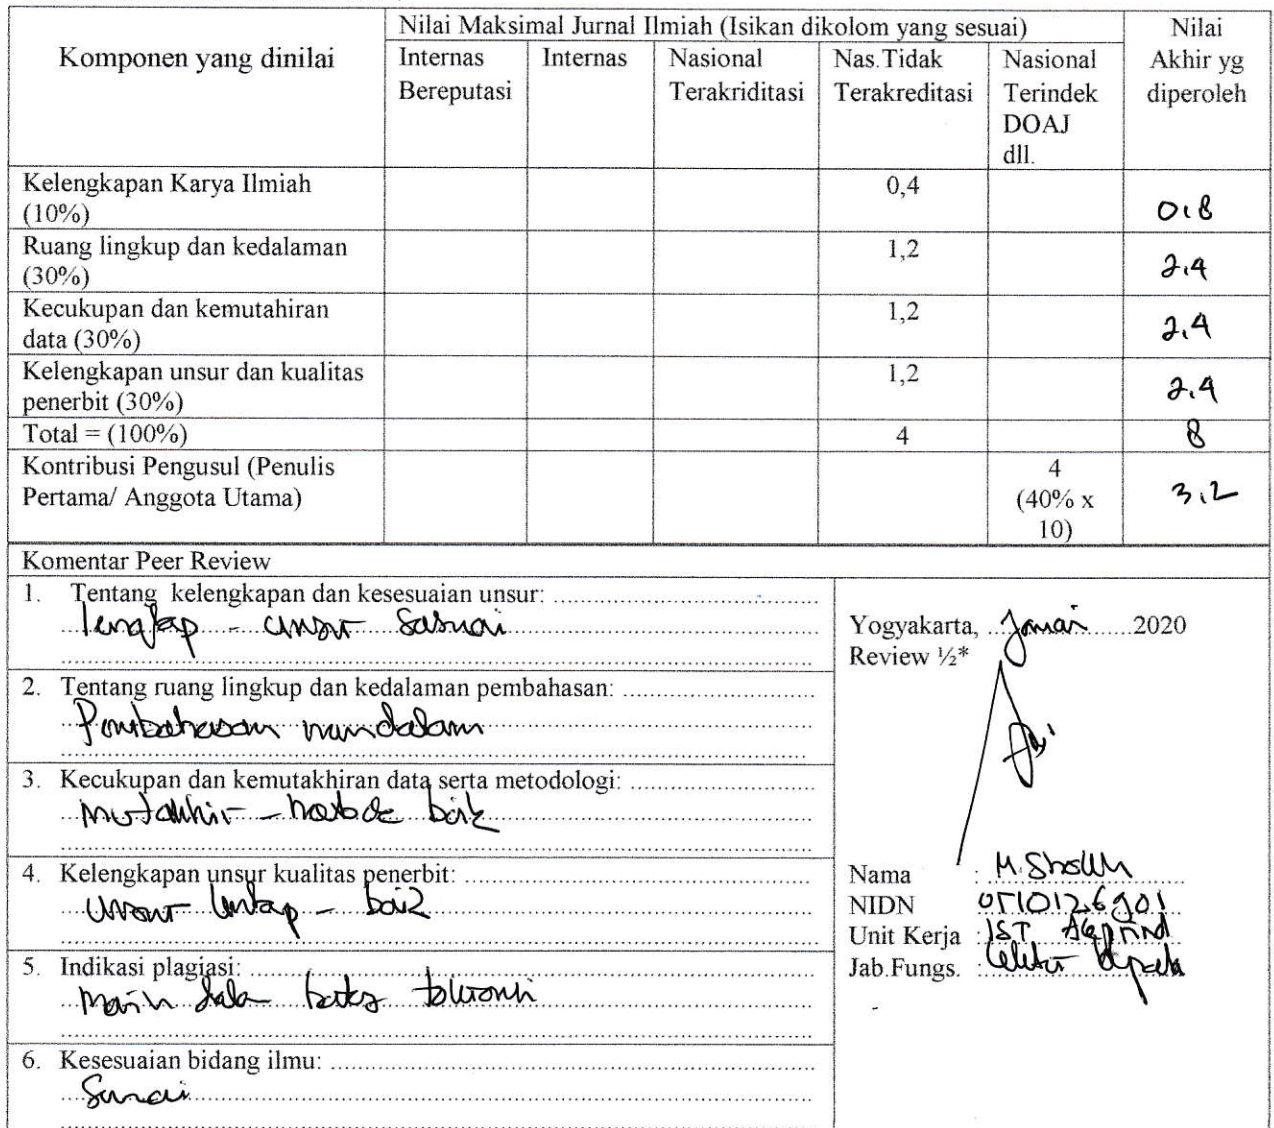 Komponen yang dinilai
Nilai Maksimal Jurnal Ilmiah (Isikan dikolom yang sesuai)
Nilai Akhir yg diperoleh
Internas Bereputasi
Internas
Nasional Terakriditasi
Nas.Tidak Terakreditasi
Nasional Terindek DOAJ dll.
Kelengkapan Karya Ilmiah (10%)
0,4
0,8
Ruang lingkup dan kedalaman (30%)
1,2
2,4
Kecukupan dan kemutahiran data (30%)
1,2
2,4
Kelengkapan unsur dan kualitas penerbit (30%)
1,2
2,4
Total = (100%)
4
8
Kontribusi Pengusul (Penulis Pertama/ Anggota Utama)
4 (40% x 10)
3,2
Komentar Peer Review
1. Tentang kelengkapan dan kesesuaian unsur:
lengkap - unsur sesuai
2. Tentang ruang lingkup dan kedalaman pembahasan:
Pembahasan mendalam
3. Kecukupan dan kemutakhiran data serta metodologi:
mutakhir - metode baik
4. Kelengkapan unsur kualitas penerbit:
unsur lengkap - baik
5. Indikasi plagiasi:
masih batas toleransi
6. Kesesuaian bidang ilmu:
Sesuai
Yogyakarta, Januari 2020
Review ½*
Nama : M. Sholeh
NIDN
Unit Kerja : IST Akprind
Jab.Fungs. : Lektor Kepala